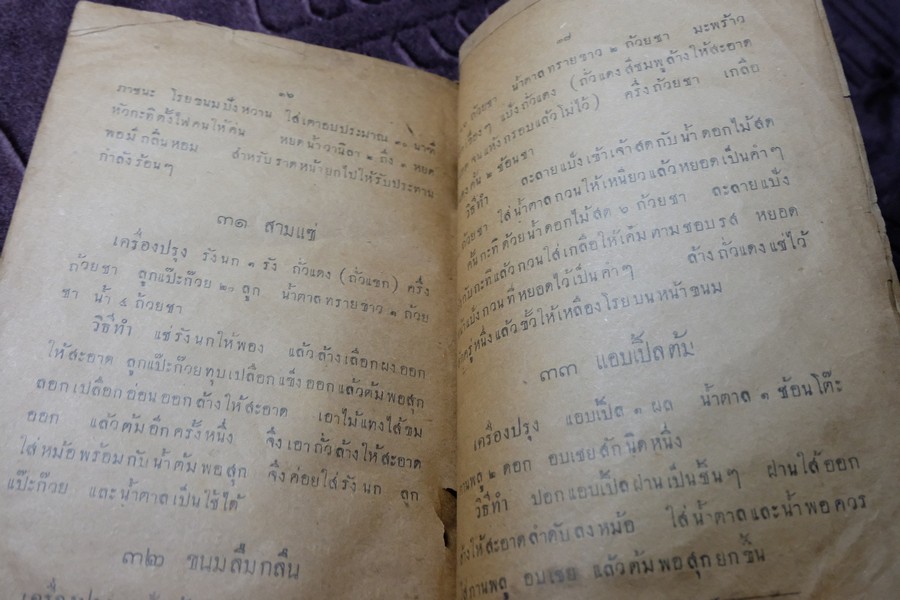 ๓๖
ภาชนะ โรยขนมปังหวาน ใส่เตาอบประมาณ ๓๐ นาที
หัวกะทิตั้งไฟคนให้ค่น หยดน้ำวานิลา ๒ ถึง ๓ หยด
พอมีกลิ่นหอม สำหรับราดหน้ายกไปให้รับประทาน
กำลังร้อนๆ
๓๑ สามแซ่
เครื่องปรุง รังนก ๑ รัง ถั่วแดง (ถั่วแขก) ครึ่ง
ถ้วยชา ลูกแป๊ะก๊วย ๒๐ ลูก น้ำตาลทรายขาว ๑ ถ้วย
ชา น้ำ ๔ ถ้วยชา
วิธีทำ แช่รังนกให้พอง แล้วล้างเลือกผงออก
ให้สะอาด ลูกแป๊ะก๊วยทุบเปลือกแข็งออกแล้วต้มพอสุก
ลอกเปลือกอ่อนออกล้างให้สะอาด เอาไม้แทงไส้ขม
ออก แล้วต้มอีกครั้งหนึ่ง จึ่งเอาถั่วล้างให้สะอาด
ใส่หม้อพร้อมกับน้ำต้มพอสุก จึ่งค่อยใส่รังนก ลูก
แป๊ะก๊วย และน้ำตาลเป็นใช้ได้
๓๒ ขนมลืมกลืน
เครื่องปรุง
๓๗
ถ้วยชา น้ำตาลทรายขาว ๒ ถ้วยชา มะพร้าว
แบ่งถั่วแดง (ถั่วแดงสีชมพูล้างให้สะอาด
จนแห้งกรอบแล้วโม่ไว้) ครึ่งถ้วยชา เกลือ
๒ ช้อนชา
วิธีทำ ละลายแป้งเข้าเจ้าสดกับน้ำดอกไม้สด
ถ้วยชา ใส่น้ำตาลกวนให้เหนียวแล้วหยอดเป็นคำๆ
คั้นกะทิด้วยน้ำดอกไม้สด ๖ ถ้วยชา ละลายแป้ง
กับกะทิแล้วกวนใส่เกลือให้เค็มตามชอบรส หยอด
แป้งกวนที่หยอดไว้เป็นคำๆ ล้างถั่วแดงแช่ไว้
ครู่หนึ่งแล้วขั้วให้เหลืองโรยบนหน้าขนม
๓๓ แอบเปิลต้ม
เครื่องปรุง แอบเปิล ๑ ผล น้ำตาล ๑ ช้อนโต๊ะ
กานพลู ๒ ดอก อบเชยสักนิดหนึ่ง
วิธีทำ ปอกแอบเปิลฝานเป็นชิ้นๆ ฝานไส้ออก
ล้างให้สะอาดลำดับลงหม้อ ใส่น้ำตาลและน้ำพอควร
ใส่กานพลู อบเชย แล้วต้มพอสุกยกขึ้น